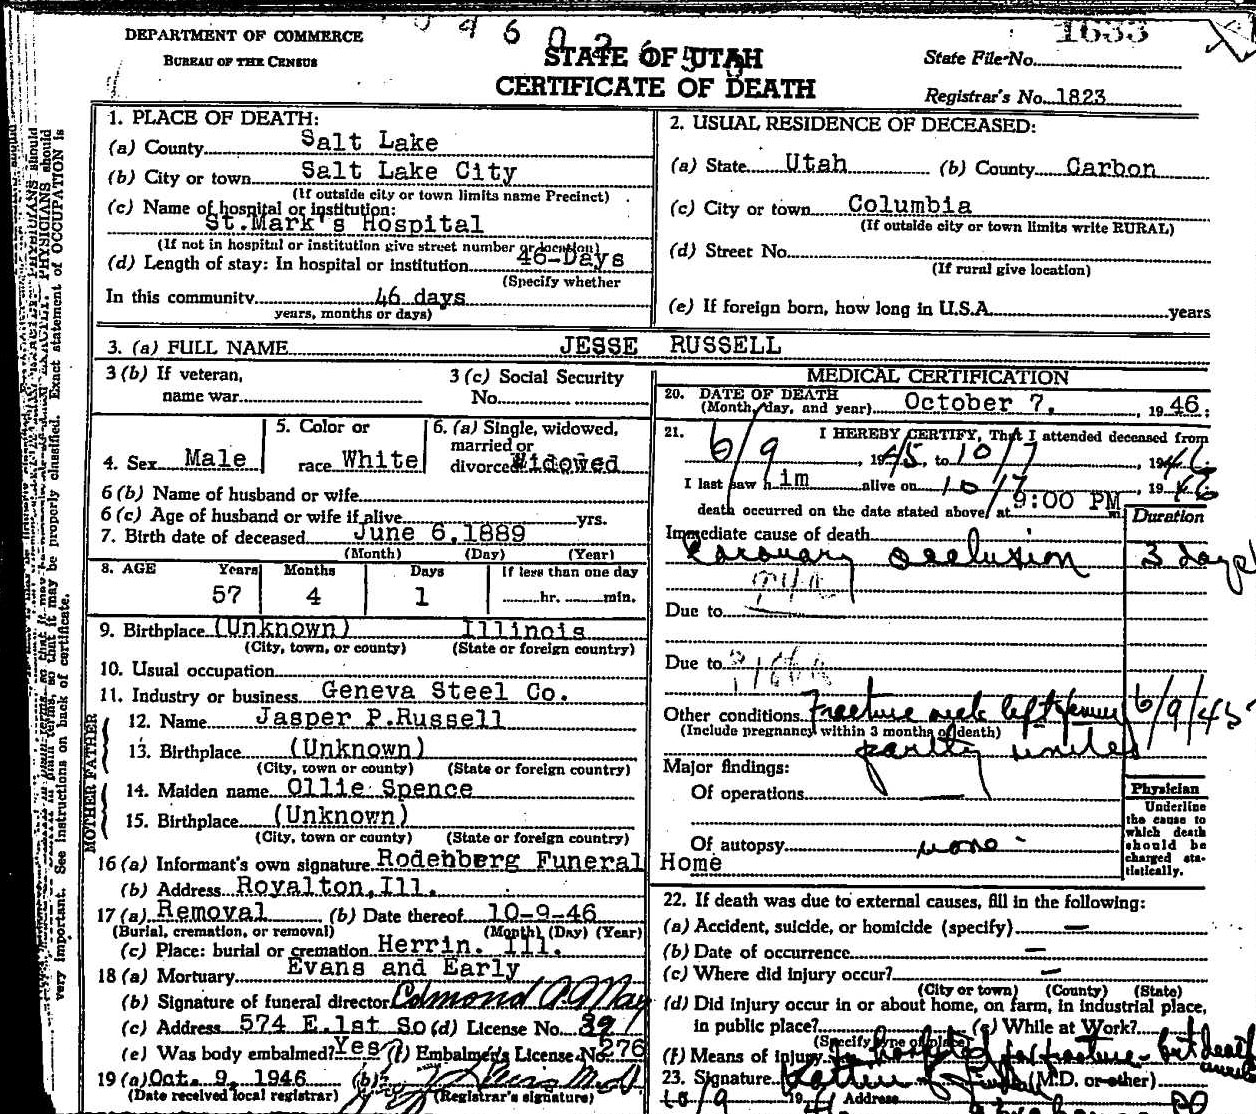 DEPARTMENT OF COMMERCE
BUREAU OF THE CENSUS
STATE OF UTAH
CERTIFICATE OF DEATH
1633
State File No.
Registrar's No. 1823
1. PLACE OF DEATH:
(a) County Salt Lake
(b) City or town Salt Lake City
(If outside city or town limits name Precinct)
(c) Name of hospital or institution:
St.Mark's Hospital
(If not in hospital or institution give street number or location)
(d) Length of stay: In hospital or institution 46-Days
(Specify whether
In this community 46 days
years, months or days)
2. USUAL RESIDENCE OF DECEASED:
(a) State Utah (b) County Carbon
(c) City or town Columbia
(If outside city or town limits write RURAL)
(d) Street No.
(If rural give location)
(e) If foreign born, how long in U.S.A. years
3. (a) FULL NAME JESSE RUSSELL
3 (b) If veteran,
name war
3 (c) Social Security
No.
4. Sex Male
5. Color or
race White
6. (a) Single, widowed,
married or
divorced Widowed
6 (b) Name of husband or wife
6 (c) Age of husband or wife if alive yrs.
7. Birth date of deceased June 6,1889
(Month) (Day) (Year)
8. AGE Years Months Days If less than one day
57 4 1 hr. min.
9. Birthplace (Unknown) Illinois
(City, town, or county) (State or foreign country)
10. Usual occupation
11. Industry or business Geneva Steel Co.
MOTHER FATHER
12. Name Jasper P.Russell
13. Birthplace (Unknown)
(City, town or county) (State or foreign country)
14. Maiden name Ollie Spence
15. Birthplace (Unknown)
(City, town or county) (State or foreign country)
16 (a) Informant's own signature Rodenberg Funeral
Home
(b) Address Royalton,Ill.
17 (a) Removal (b) Date thereof 10-9-46
(Burial, cremation, or removal) (Month) (Day) (Year)
(c) Place: burial or cremation Herrin. Ill.
18 (a) Mortuary Evans and Early
(b) Signature of funeral director Edmond A May
(c) Address 574 E.1st So (d) License No. 39
(e) Was body embalmed? Yes (f) Embalmer's License No. 276
19 (a) Oct. 9, 1946 (b)
(Date received local registrar) (Registrar's signature)
MEDICAL CERTIFICATION
20. DATE OF DEATH
(Month, day, and year) October 7, , 1946.
21. I HEREBY CERTIFY, That I attended deceased from
6/9 , 1945, to 10/7 , 1946
I last saw him alive on 10/7 , 1946
death occurred on the date stated above, at 9:00 PM m
Duration
Immediate cause of death
Coronary occlusion 3 days
Due to
Due to
Other conditions Fracture neck left femur 6/9/45
(Include pregnancy within 3 months of death)
partly united
Major findings:
Of operations —
Of autopsy none -
Physician
Underline
the cause to
which death
should be
charged sta-
tistically.
22. If death was due to external causes, fill in the following:
(a) Accident, suicide, or homicide (specify) —
(b) Date of occurrence —
(c) Where did injury occur? —
(City or town) (County) (State)
(d) Did injury occur in or about home, on farm, in industrial place,
in public place? (e) While at Work?
(Specify type of place)
(f) Means of injury In hospital for fracture - but death
23. Signature (M.D. or other)
10/9 Address
very important. See instructions on back of certificate.
Exact statement of OCCUPATION is